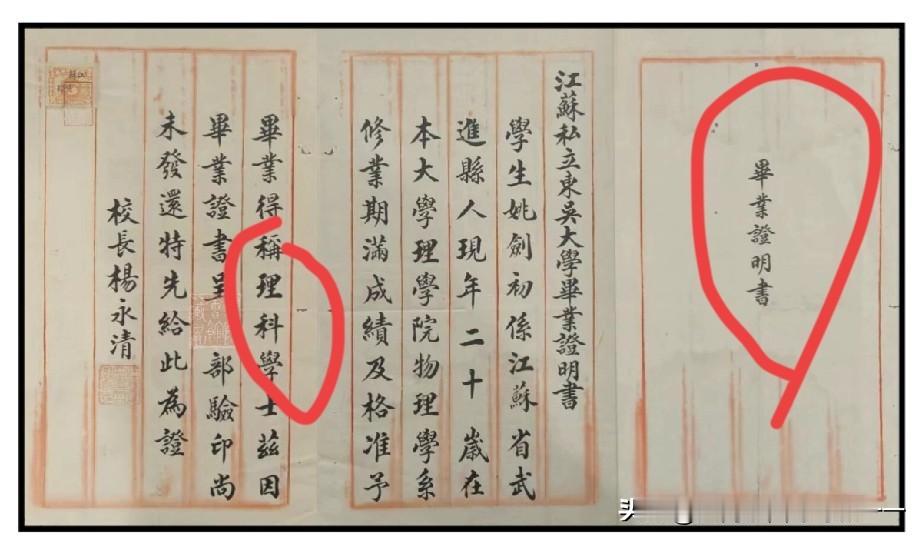 畢業證明書
江蘇私立東吳大學畢業證明書
學生姚劍初係江蘇省武
進縣人現年二十歲在
本大學理學院物理學系
修業期滿成績及格准予
畢業得稱理科學士茲因
畢業證書呈部驗印尚
未發還特先給此為證
校長楊永清
头